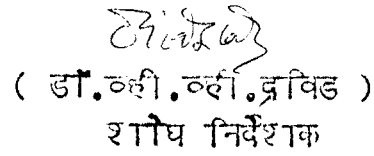 ( डॉ.व्ही.व्ही.द्रविड )
शोध निर्देशक